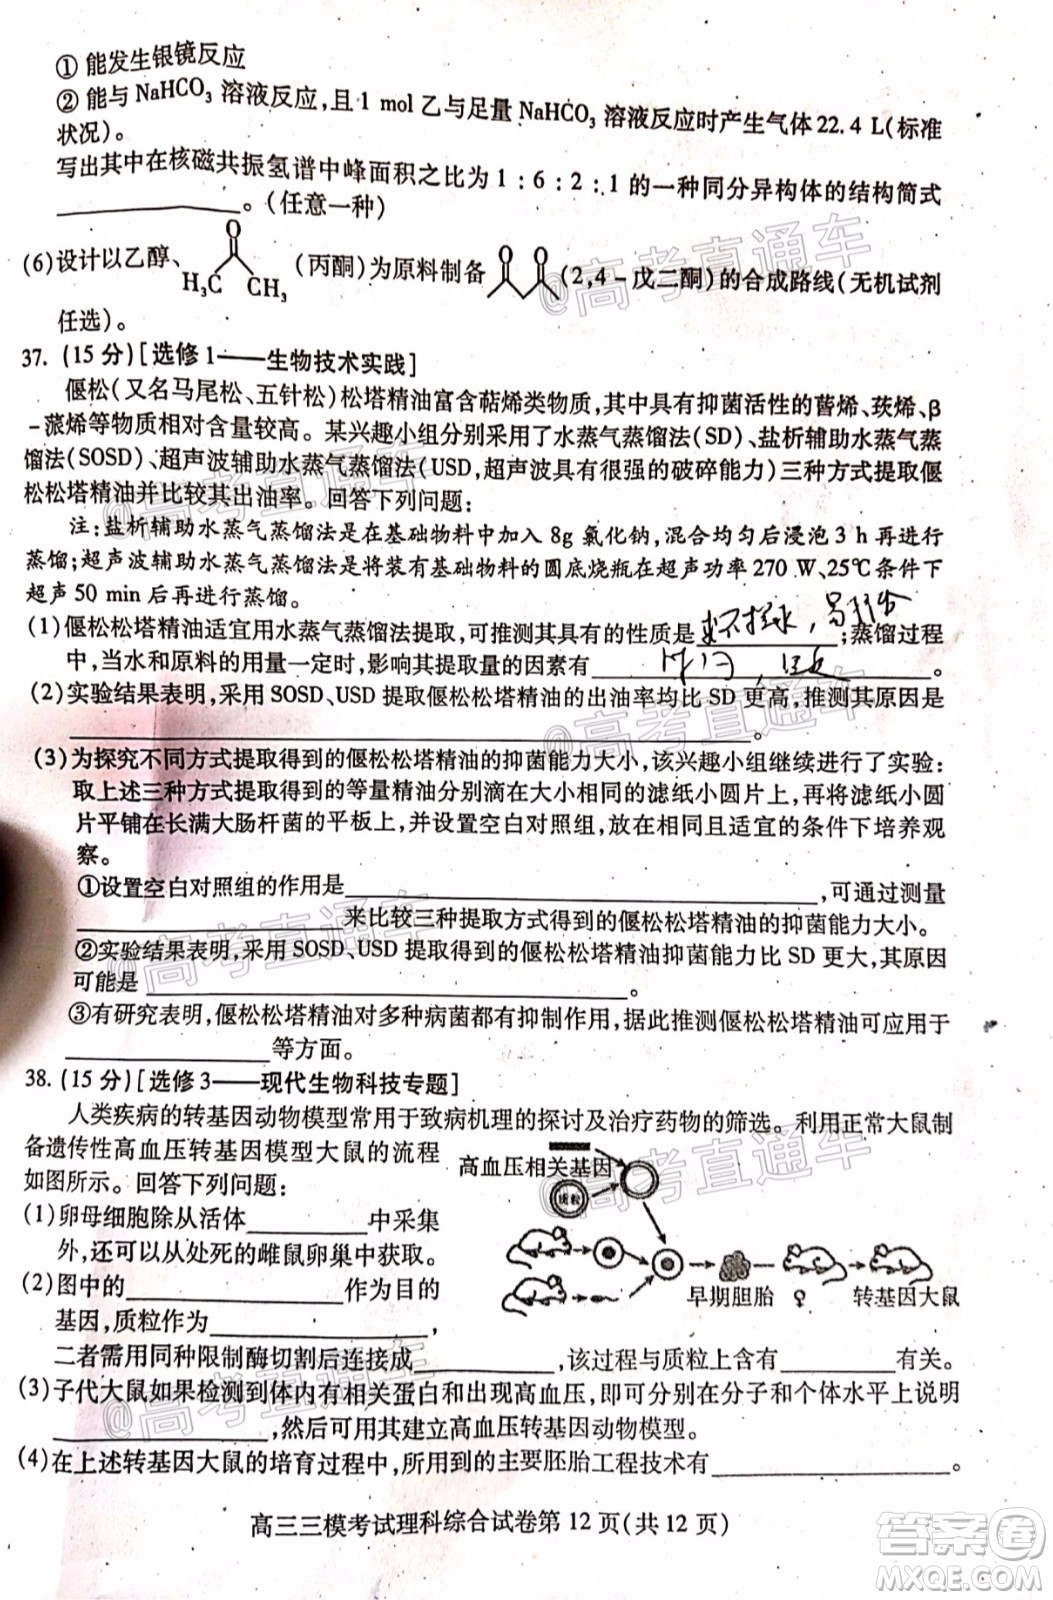 ①能发生银镜反应
②能与NaHCO₃溶液反应,且1 mol乙与足量NaHCO₃溶液反应时产生气体22.4 L(标准
状况)。
写出其中在核磁共振氢谱中峰面积之比为1:6:2:1的一种同分异构体的结构简式
____________。(任意一种)
(6)设计以乙醇、 O H₃C CH₃ (丙酮)为原料制备 O O (2,4-戊二酮)的合成路线(无机试剂
任选)。
37.(15分)[选修1——生物技术实践]
偃松(又名马尾松、五针松)松塔精油富含萜烯类物质,其中具有抑菌活性的莰烯、β
-蒎烯等物质相对含量较高。某兴趣小组分别采用了水蒸气蒸馏法(SD)、盐析辅助水蒸气蒸
馏法(SOSD)、超声波辅助水蒸气蒸馏法(USD,超声波具有很强的破碎能力)三种方式提取偃
松松塔精油并比较其出油率。回答下列问题:
注:盐析辅助水蒸气蒸馏法是在基础物料中加入8g氯化钠,混合均匀后浸泡3 h再进行
蒸馏;超声波辅助水蒸气蒸馏法是将装有基础物料的圆底烧瓶在超声功率270 W、25℃条件下
超声50 min后再进行蒸馏。
(1)偃松松塔精油适宜用水蒸气蒸馏法提取,可推测其具有的性质是____________;蒸馏过程
中,当水和原料的用量一定时,影响其提取量的因素有____________。
(2)实验结果表明,采用SOSD、USD提取偃松松塔精油的出油率均比SD更高,推测其原因是
____________。
(3)为探究不同方式提取得到的偃松松塔精油的抑菌能力大小,该兴趣小组继续进行了实验:
取上述三种方式提取得到的等量精油分别滴在大小相同的滤纸小圆片上,再将滤纸小圆
片平铺在长满大肠杆菌的平板上,并设置空白对照组,放在相同且适宜的条件下培养观
察。
①设置空白对照组的作用是____________,可通过测量
____________来比较三种提取方式得到的偃松松塔精油的抑菌能力大小。
②实验结果表明,采用SOSD、USD提取得到的偃松松塔精油抑菌能力比SD更大,其原因
可能是____________。
③有研究表明,偃松松塔精油对多种病菌都有抑制作用,据此推测偃松松塔精油可应用于
____________等方面。
38.(15分)[选修3——现代生物科技专题]
人类疾病的转基因动物模型常用于致病机理的探讨及治疗药物的筛选。利用正常大鼠制
备遗传性高血压转基因模型大鼠的流程
如图所示。回答下列问题:
(1)卵母细胞除从活体____________中采集
外,还可以从处死的雌鼠卵巢中获取。
(2)图中的____________作为目的
基因,质粒作为____________,
二者需用同种限制酶切割后连接成____________,该过程与质粒上含有____________有关。
高血压相关基因
质粒
早期胚胎 ♀ 转基因大鼠
(3)子代大鼠如果检测到体内有相关蛋白和出现高血压,即可分别在分子和个体水平上说明
____________,然后可用其建立高血压转基因动物模型。
(4)在上述转基因大鼠的培育过程中,所用到的主要胚胎工程技术有____________。
高三三模考试理科综合试卷第12页(共12页)
@高考直通车
@高考直通车
@高考直通车
@高考直通车
@高考直通车
@高考直通车
@高考直通车
答案圈
MXQE.COM